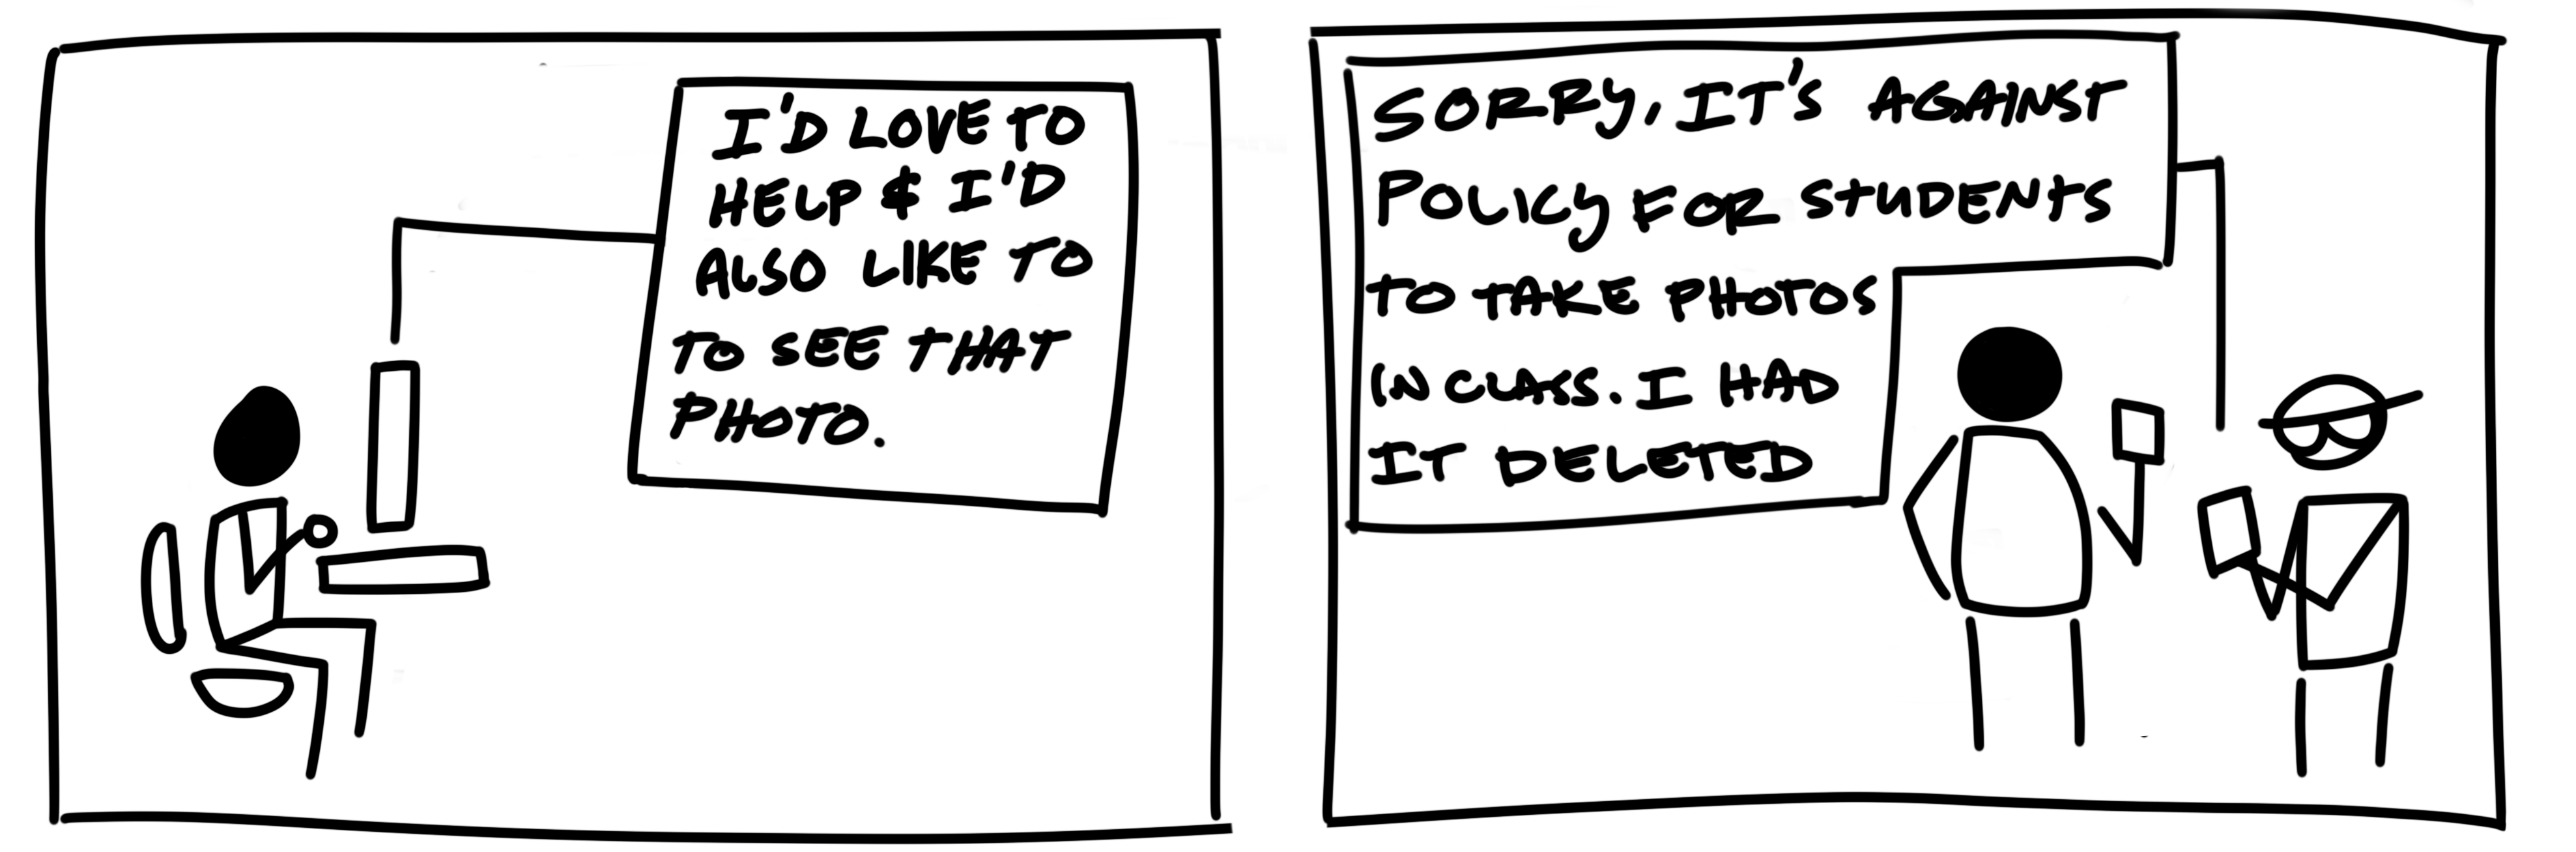 I'D LOVE TO
HELP & I'D
ALSO LIKE TO
TO SEE THAT
PHOTO.
SORRY, IT'S AGAINST
POLICY FOR STUDENTS
TO TAKE PHOTOS
IN CLASS. I HAD
IT DELETED